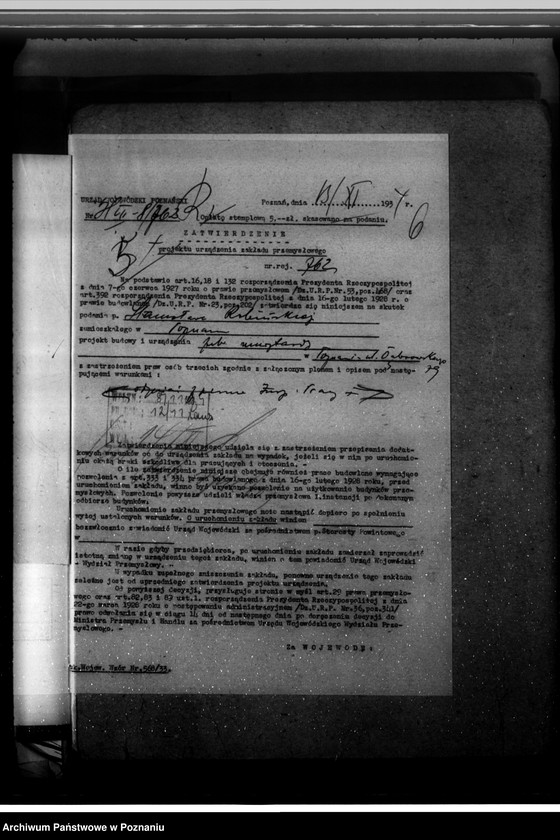 URZĄD WOJEWÓDZKI POZNAŃSKI
Poznań, dnia 13/XI 1934 r.
Nr.
Opłatę stemplową 5.--zł. skasowano na podaniu.
6
ZATWIERDZENIE
projektu urządzenia zakładu przemysłowego
nr.rej. 762
Na podstawie art.16,18 i 132 rozporządzenia Prezydenta Rzeczypospolitej
z dnia 7-go czerwca 1927 roku o prawie przemysłowem /Dz.U.R.P.Nr.53,poz.468/ oraz
art.392 rozporządzenia Prezydenta Rzeczypospolitej z dnia 16-go lutego 1928 r. o
prawie budowlanem /Dz.U.R.P. Nr.23,poz.202/ zatwierdza się niniejszem na skutek
podania p. Stanisława
zamieszkałego w Poznaniu
projekt budowy i urządzenia fabr. musztardy
w Poznaniu ul. Dąbrowskiego
z zastrzeżeniem praw osób trzecich zgodnie z załączonym planem i opisem pod nastę-
pującemi warunkami :
Zatwierdzenia niniejszego udziela się z zastrzeżeniem przepisania dodat-
kowych warunków co do urządzenia zakładu na wypadek, jeżeli się w nim po uruchomie-
niu okażą braki szkodliwe dla pracujących i otoczenia. -
O ile zatwierdzenie niniejsze obejmuje również prace budowlane wymagające
pozwolenia z art.333 i 334 prawa budowlanego z dnia 16-go lutego 1928 roku, przed
uruchomieniem zakładu, winno być uzyskane pozwolenie na użytkowanie budynków prze-
mysłowych. Pozwolenie powyższe udzieli władza przemysłowa I.instancji po dokonanym
odbiorze budynków.
Uruchomienie zakładu przemysłowego może nastąpić dopiero po spełnieniu
wyżej ustalonych warunków. O uruchomieniu zakładu winien
bezzwłocznie zawiadomić Urząd Wojewódzki za pośrednictwem p.Starosty Powiatowego
w
W razie gdyby przedsiębiorca, po uruchomieniu zakładu zamierzał wprowadzić
istotną zmianę w urządzeniu tegoż zakładu, winien o tem powiadomić Urząd Wojewódzki
- Wydział Przemysłowy. -
W wypadku zupełnego zniszczenia zakładu, ponowne urządzenie tego zakładu
zależne jest od uprzedniego zatwierdzenia projektu urządzenia.
Od powyższej decyzji, przysługuje stronie w myśl art.29 prawa przemysło-
wego oraz art.82,83 i 89 ust.1. rozporządzenia Prezydenta Rzeczypospolitej z dnia
22-go marca 1928 roku o postępowaniu administracyjnem /Dz.U.R.P. Nr.36,poz.341/
prawo odwołania się w ciągu 14 dni od następnego dnia po doręczeniu decyzji do
Ministra Przemysłu i Handlu za pośrednictwem Urzędu Wojewódzkiego Wydziału Prze-
mysłowego. -
Za WOJEWODĘ:
Wojew. Wzór Nr.568/33.
Archiwum Państwowe w Poznaniu